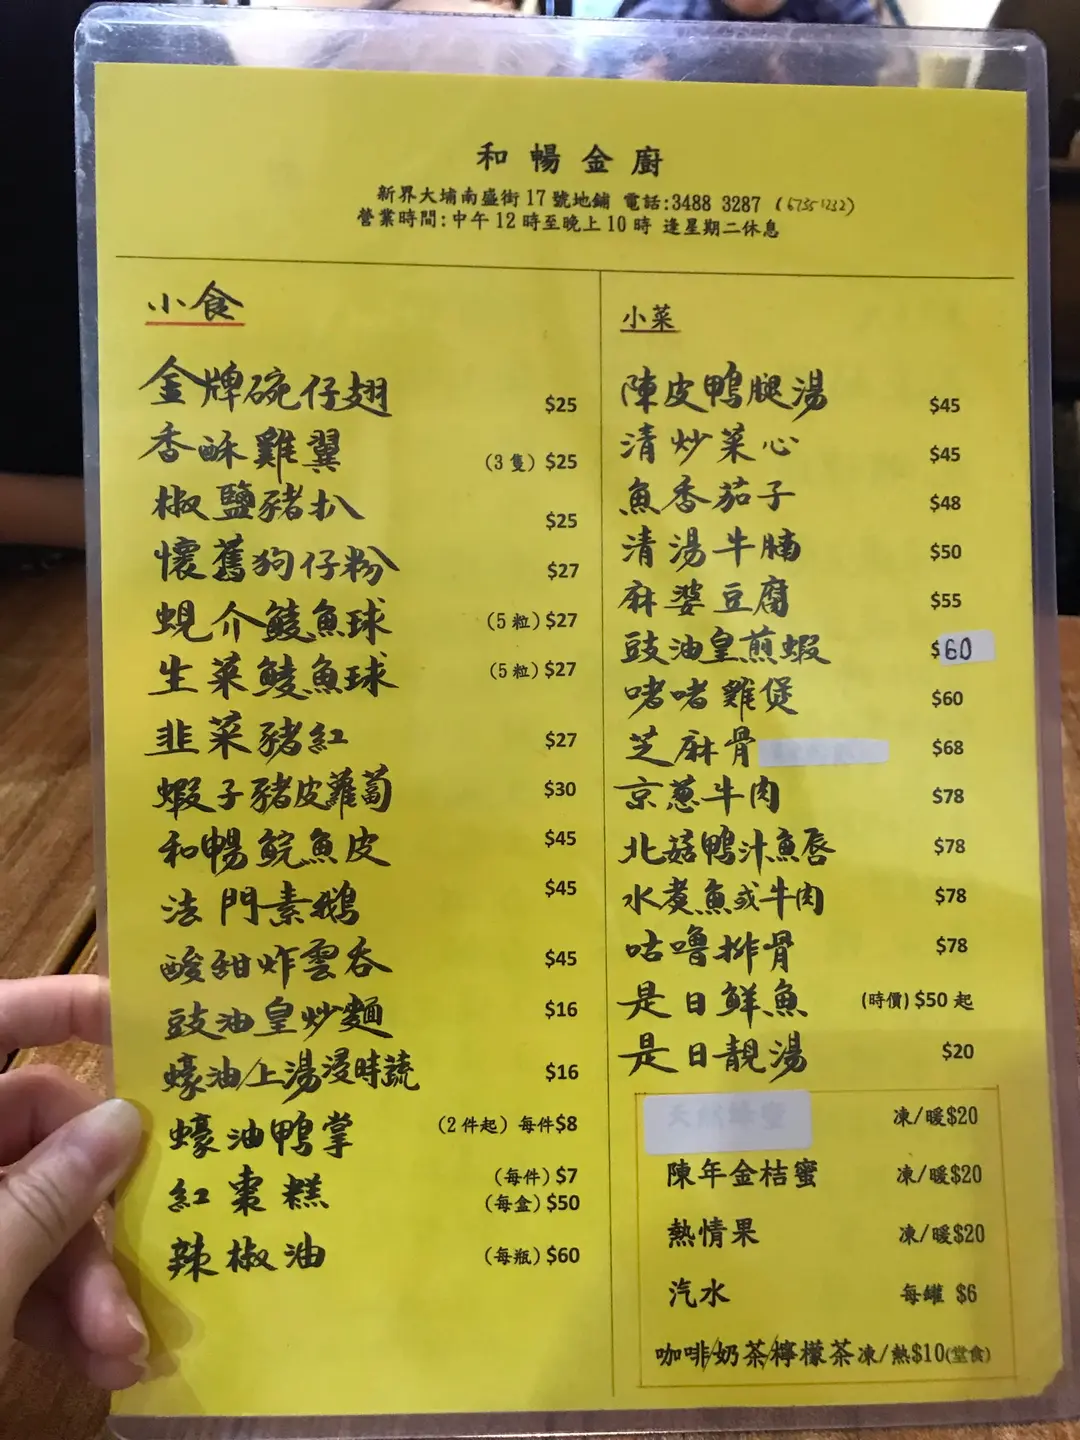 和暢金廚
新界大埔南盛街17號地鋪 電話:3488 3287 (6735 1232)
營業時間:中午12時至晚上10時 逢星期二休息
小食
金牌碗仔翅 $25
香酥雞翼 (3隻) $25
椒鹽豬扒 $25
懷舊狗仔粉 $27
蜆介鯪魚球 (5粒) $27
生菜鯪魚球 (5粒) $27
韭菜豬紅 $27
蝦子豬皮蘿蔔 $30
和暢鯇魚皮 $45
法門素鵝 $45
酸甜炸雲吞 $45
豉油皇炒麵 $16
蠔油/上湯浸時蔬 $16
蠔油鴨掌 (2件起) 每件$8
紅棗糕 (每件) $7
(每盒) $50
辣椒油 (每瓶) $60
小菜
陳皮鴨腿湯 $45
清炒菜心 $45
魚香茄子 $48
清湯牛腩 $50
麻婆豆腐 $55
豉油皇煎蝦 $60
啫啫雞煲 $60
芝麻骨 $68
京蔥牛肉 $78
北菇鴨汁魚唇 $78
水煮魚或牛肉 $78
咕嚕排骨 $78
是日鮮魚 (時價) $50起
是日靚湯 $20
凍/暖$20
陳年金桔蜜 凍/暖$20
熱情果 凍/暖$20
汽水 每罐 $6
咖啡/奶茶/檸檬茶 凍/熱$10(堂食)